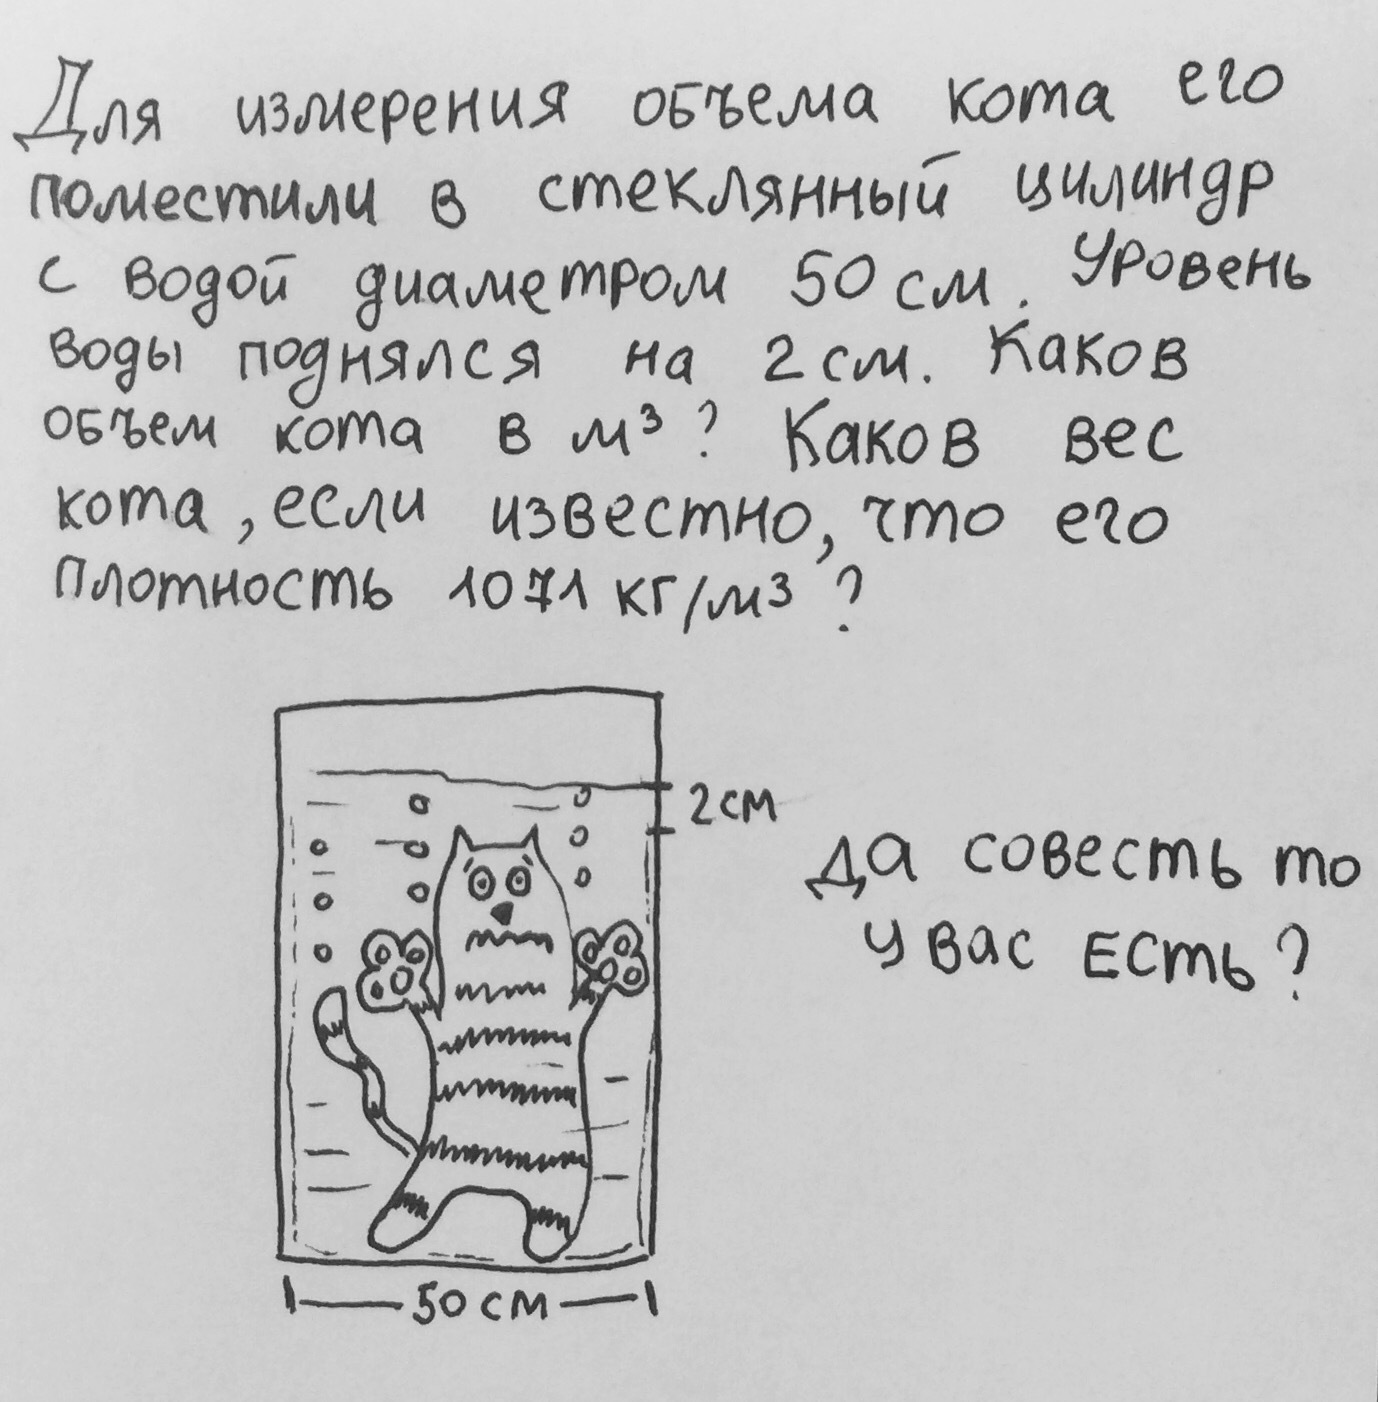 Для измерения объема кота его
поместили в стеклянный цилиндр
с водой диаметром 50 см. Уровень
воды поднялся на 2 см. Каков
объем кота в м³? Каков вес
кота, если известно, что его
плотность 1071 кг/м³?
2 см
Да совесть то
у вас есть?
50 см